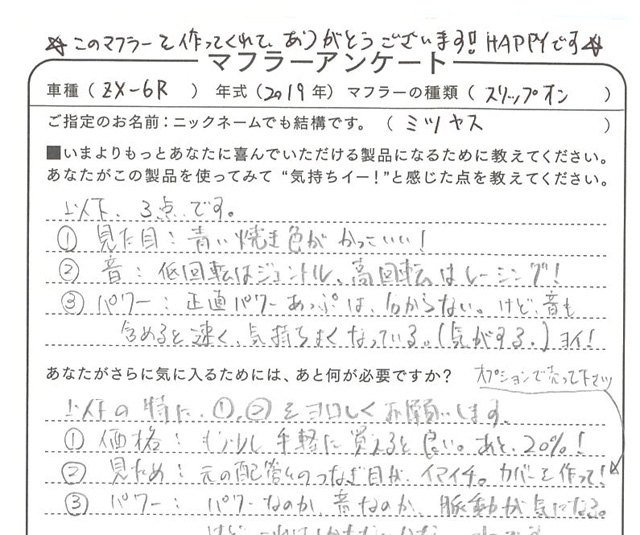 ☆このマフラーを作ってくれて、ありがとうございます!! HAPPYです☆
マフラーアンケート
車種(ZX-6R) 年式(2019年) マフラーの種類(スリップオン)
ご指定のお名前:ニックネームでも結構です。(ミツヤス)
■いまよりもっとあなたに喜んでいただける製品になるために教えてください。
あなたがこの製品を使ってみて“気持ちイー!”と感じた点を教えてください。
以下、3点です。
①見た目:青い焼き色がかっこいい!
②音:低回転はジェントル、高回転はレーシング!
③パワー:正直パワーあっぷは、わからない。けど、音も
含めると速く、気持ちよくなっている。(気がする。)ヨイ!
あなたがさらに気に入るためには、あと何が必要ですか? オプションで売って下さい
以下の特に、①,②をヨロしくお願いします。
①価格:もう少し手軽に買えると良い。あと、20%!
②見ため:元の配管とのつなぎ目が、イマイチ。カバーを作って!
③パワー:パワーなのか、音なのか、脈動が気になる。